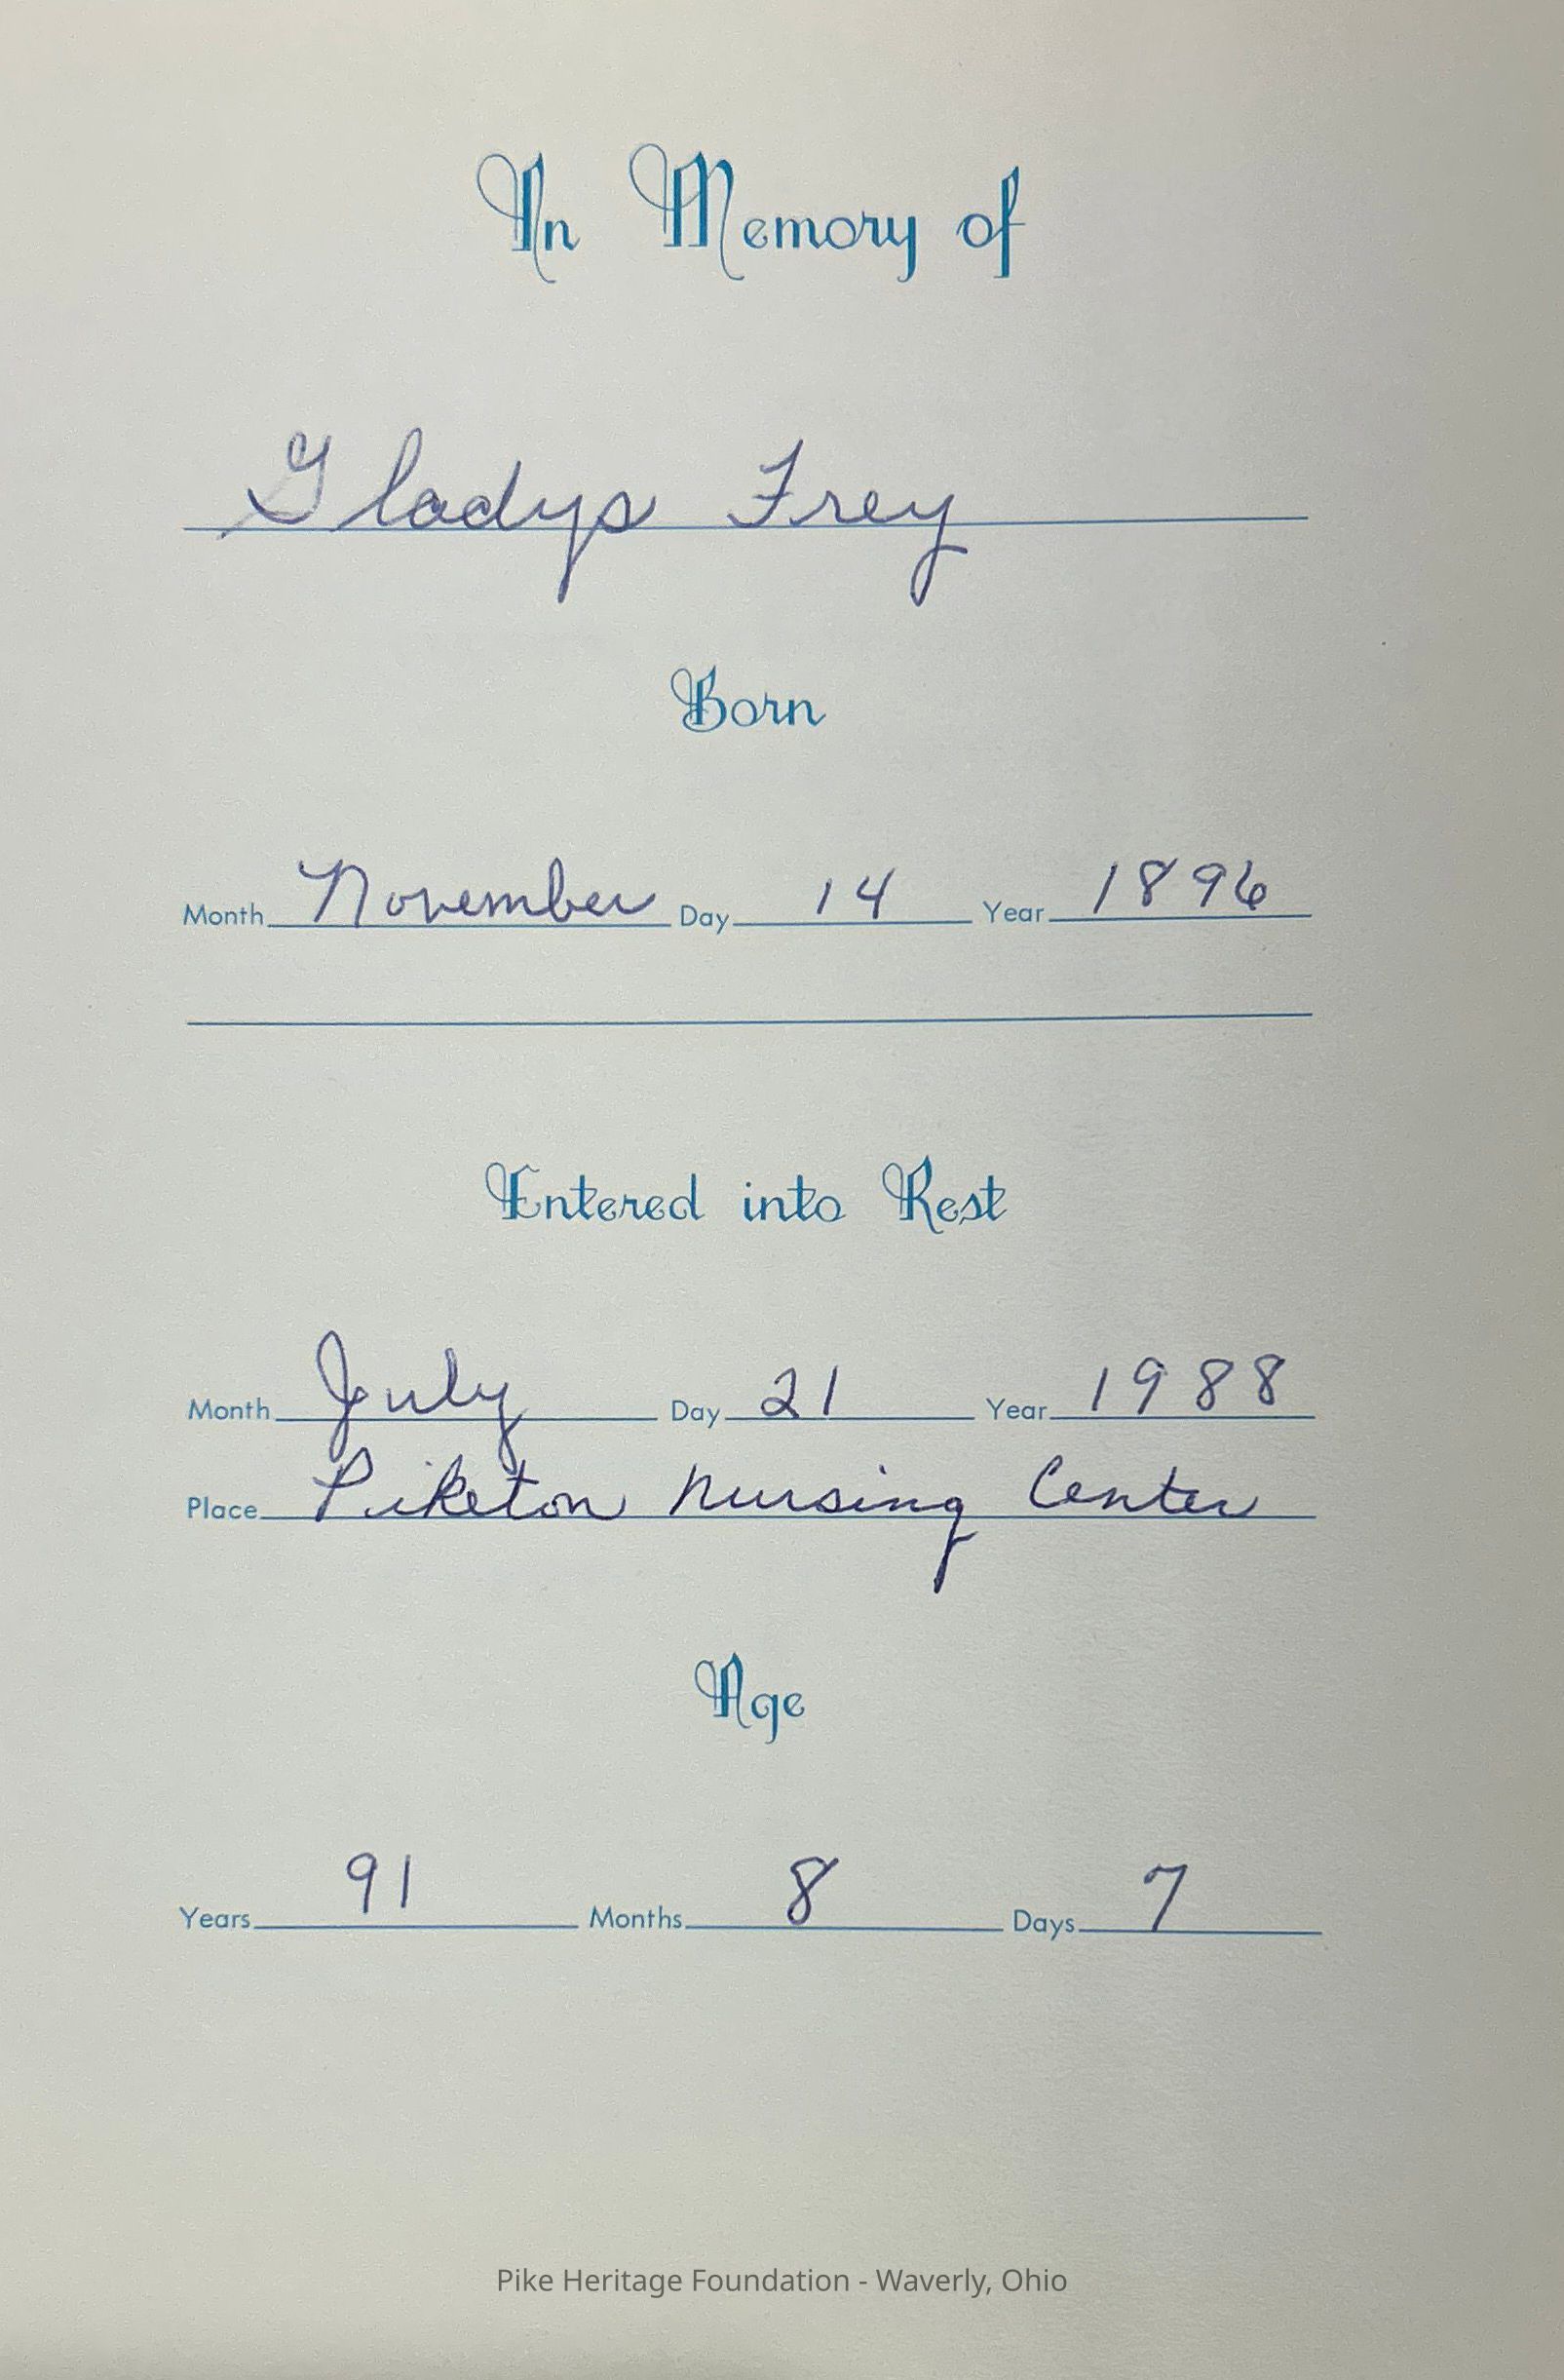 In Memory of
Gladys Frey
Born
Month November Day 14 Year 1896
Entered into Rest
Month July Day 21 Year 1988
Place Piketon Nursing Center
Age
Years 91 Months 8 Days 7
Pike Heritage Foundation - Waverly, Ohio